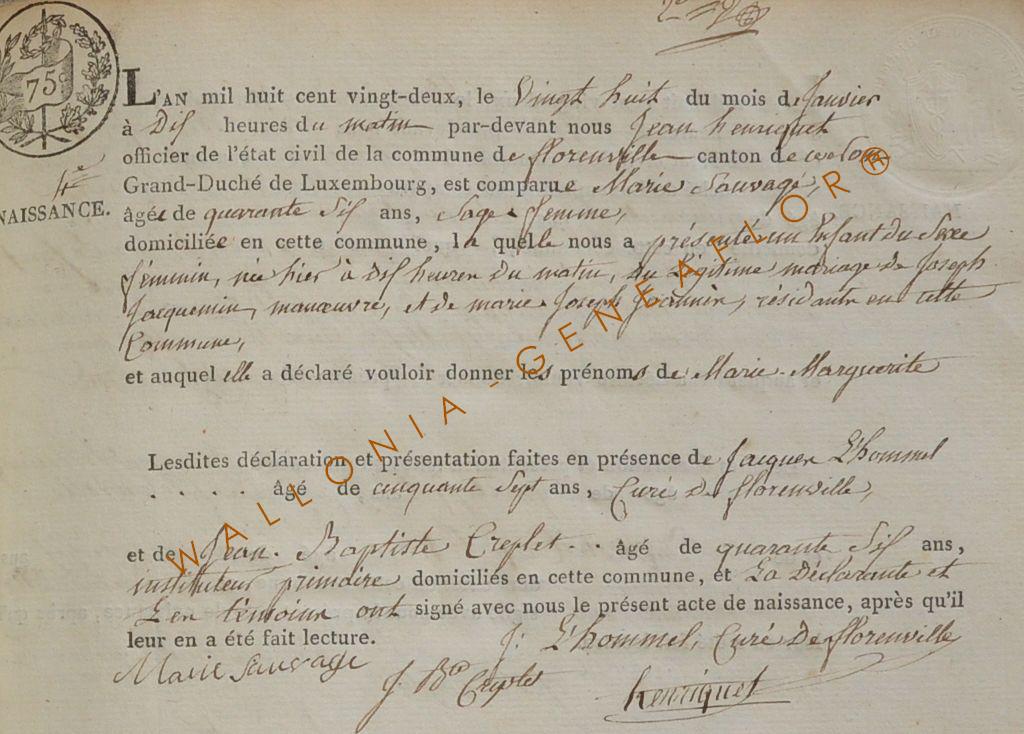 75
4e
NAISSANCE.
L'AN mil huit cent vingt-deux, le Vingt huit du mois de Janvier
à Dix heures du matin par-devant nous Jean henriquet
officier de l'état civil de la commune de florenville canton de
Grand-Duché de Luxembourg, est comparue Marie Sauvage,
âgée de quarante Six ans, Sage-femme,
domiciliée en cette commune, la quelle nous a présenté un Enfant du Sexe
féminin, née hier à dix heures du matin, du Légitime mariage de Joseph
Jacquemin, manœuvre, et de marie-Joseph Joannin, résidants en cette
Commune,
et auquel elle a déclaré vouloir donner les prénoms de Marie-Marguerite
Lesdites déclaration et présentation faites en présence de Jacques L'hommel
. . . . . âgé de cinquante Sept ans, Curé De florenville,
et de Jean-Baptiste Creplet . . âgé de quarante Six ans,
instituteur primaire domiciliés en cette commune, et La Déclarante et
Les témoins ont signé avec nous le présent acte de naissance, après qu'il
leur en a été fait lecture. J: L'hommel, Curé De florenville
Marie Sauvage J. Bte Creplet henriquet
WALLONIA-GENEAFLOR®